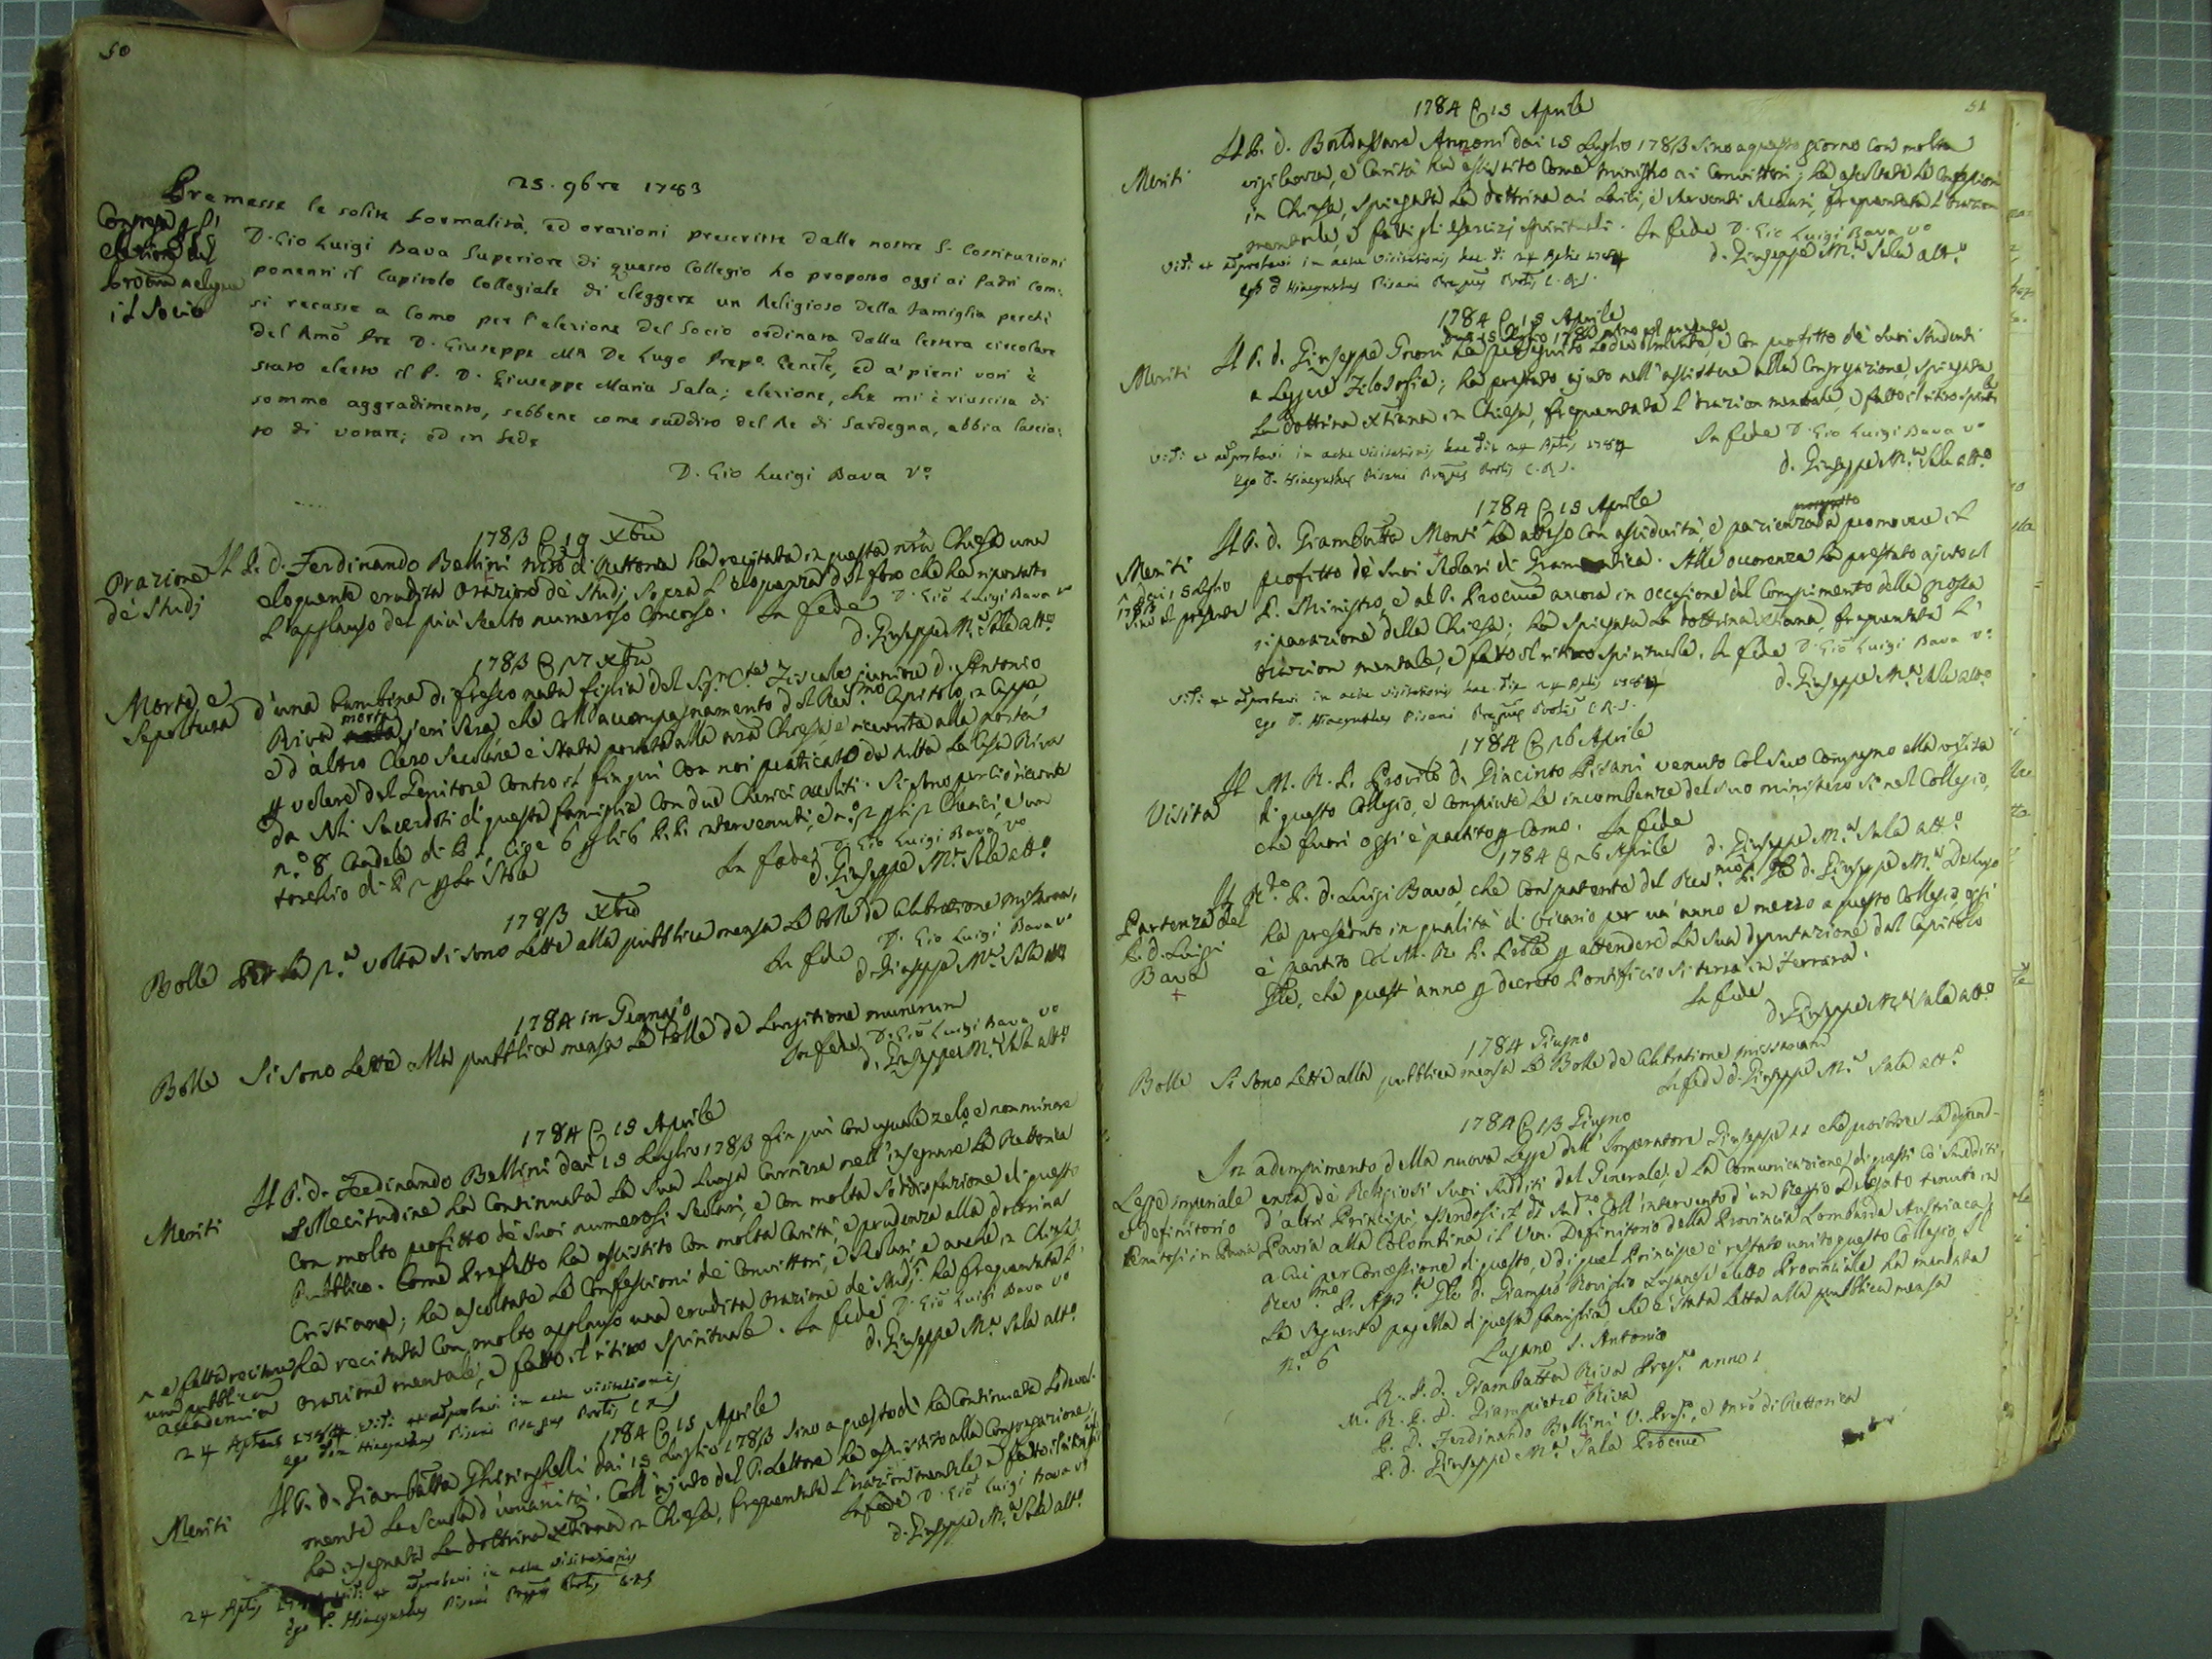 50
25. 9bre 1783
Premesse le solite formalità, ed orazioni prescritte dalle nostre S. Costituzioni
D. Gio Luigi Bava Superiore di questo Collegio ho proposto oggi ai Padri com:
ponenti il Capitolo Collegiale di eleggere un Religioso della famiglia perchè
si recasse a Como per l'elezione del Socio ordinata dalla lettera circolare
del Rmo Pre D. Giuseppe Ma De Lugo Prepo. Genele, ed a' pieni voti è
stato eletto il P. D. Giuseppe Maria Sala; elezione, che mi è riuscita di
sommo aggradimento, sebbene come suddito del Re di Sardegna, abbia lascia:
to di votare; ed in fede
D. Gio Luigi Bava Vo.
1783 19 Xbre
Orazione
de' Studj
Il P. d. Ferdinando Bellini mro di Rettorica ha recitata in questa nra Chiesa una
eloquente erudita orazione de' Studj sopra l'eloquenza del foro che ha riportato
l'applauso del più scelto numeroso concorso. In fede D. Gio Luigi Bava Vo
d. Giuseppe Ma. Sala atto.
1783 27 Xbre
Morte, e
Sepoltura
d'una bambina di fresco nata figlia del Sigr. Cte Fiscale juniore d. Antonio
Riva morta jeri sera, che coll'accompagnamento del Revmo Capitolo in Cappe,
e d'altro Clero Secolare è stata portata alla nra Chiesa, e ricevuta alla porta
p volere del Genitore contro il fin qui con noi praticato da tutta la Casa Riva
da Noi Sacerdoti di questa famiglia con due Chierici accoliti. Si sono per ciò ricevute
no 8 Candele di L 1, cioè 6 p li 6 P.P. intervenuti, e no. 2 p i 2 Chierici, e un
torchio di L 2 p la Stola
In fede D. Gio Luigi Bava Vo
d. Giuseppe Ma. Sala atto.
1783 Xbre
Bolle Per la 2.a volta si sono lette alla pubblica mensa le Bolle de Celebratione Missarum,
In fede D. Gio Luigi Bava Vo
d. Giuseppe Ma. Sala atto
1784 in Gennajo
Bolle Si sono lette alla pubblica mensa le Bolle de Largitione munerum
In fede D. Gio Luigi Bava Vo
d. Giuseppe Ma. Sala atto.
1784 15 Aprile
Meriti
Il P. d. Ferdinando Bellini dai 15 Luglio 1783 fin qui con uguale zelo, e non minore
sollecitudine ha continuata la sua lunga carriera nell'insegnare la Rettorica
con molto profitto de' suoi numerosi scolari, e con molta soddisfazione di questo
Pubblico. Come Prefetto ha assistito con molta carità, e prudenza alla dottrina
Cristiana; ha ascoltate le Confessioni de' Convittori, e Scolari, e anche in Chiesa;
ha recitata con molto applauso una erudita orazione de' Studj^. ha frequentata l'
orazione mentale, e fatto il ritiro spirituale. In fede D. Gio Luigi Bava Vo
d. Giuseppe Ma. Sala atto.
^ e fatta recitare
una pubblica
accademia
24 Aplis 1784 vidi et adprobavi in actu visitationis
Ego D. Hiacynthus Pisani Prepus Provlis C.R.S
1784 15 Aprile
Meriti
Il P. d. Giambatta Ghiringhelli dai 15 Luglio 1783 sino a questo dì ha continuata lodevol:
mente la Scuola d'umanità. Coll'ajuto del P. Lettore ha assistito alla Congregazione,
ha insegnata la dottrina Xtiana in Chiesa, frequentata l'orazion mentale, e fatto il ritiro
In fede D. Gio Luigi Bava Vo
d. Giuseppe Ma. Sala atto.
24 Aplis vidi et adprobavi in actu visitationis
Ego D. Hiacynthus Pisani Prepus Provlis C.R.S
51
1784 15 Aprile
Meriti
Il P. d. Baldassare Annoni dai 15 Luglio 1783 sino a questo giorno con molta
vigilanza, e carità ha assistito come ministro ai Convittori; ha ascoltate le Confessioni
in Chiesa, spiegata la dottrina ai Laici, e Serventi Secolari, frequentata l'orazion
mentale, e fatti gli esercizj spirituali. In fede D. Gio Luigi Bava Vo
d. Giuseppe Ma. Sala atto.
vidi et adprobavi in actu visitationis hac die 24 Aplis 1784
Ego D. Hiacynthus Pisani Prepus Provlis C.R.S.
1784 15 Aprile
dai 15 Luglio 1783 sino al presente
Meriti
Il P. d. Giuseppe Groni ha proseguito lodevolmente, e con profitto de' suoi studenti
a leggere Filosofia; ha prestato ajuto nell'assistere alla Congregazione, spiegata
la dottrina Xtiana in Chiesa, frequentata l'orazion mentale, e fatto il ritiro spirituale
In fede D. Gio Luigi Bava Vo
d. Giuseppe Ma. Sala atto.
vidi et adprobavi in actu visitationis hac die 24 Aplis 1784
Ego D. Hiacynthus Pisani Prepus Provlis C.R.S.
1784 15 Aprile
Meriti
^ dai 15 Luglio
1783
sino al presente
Il P. d. Giambatta Monti ^ ha atteso con assiduità, e pazienza a promovere il
profitto de' suoi Scolari di Gramatica. Alle occorenze ha prestato ajuto al
P. Ministro, e al P. Procure ancora in occasione del compimento della grossa
riparazione della Chiesa; ha spiegata la dottrina Xtiana, frequentata l'
orazion mentale, e fatto il ritiro spirituale. In fede D. Gio Luigi Bava Vo.
d. Giuseppe Ma. Sala atto.
vidi et adprobavi in actu visitationis hac die 24 Aplis 1784
Ego D. Hiacynthus Pisani Prepus Provlis C.R.S.
1784 26 Aprile
Visita
Il M. R. P. Provle d. Giacinto Pisani venuto col suo Compagno alla visita
di questo Collegio, e compiute le incombenze del suo ministero sì nel Collegio,
che fuori oggi è partito p Como. In fede
d. Giuseppe Ma. Sala atto.
1784 26 Aprile
Partenza del
P. d. Luigi
Bava
Il Rdo P. d. Luigi Bava, che con patente del Revmo P. Gle d. Giuseppe Ma. De Lugo
ha preseduto in qualità di Vicario per un'anno e mezzo a questo Collegio, oggi
è partito col M. R. P. Provle p attendere la sua deputazione dal Capitolo
Gle, che quest'anno p decreto Pontificio si terrà in Ferrara.
In fede
d. Giuseppe Ma. Sala atto
1784 Giugno
Bolle Si sono lette alla pubblica mensa le Bolle de Celebratione missarum
In fede d. Giuseppe Ma. Sala atto.
1784 13 Giugno
Legge imperiale
e definitorio
tenutosi in Pavia
In adempimento della nuova legge dell'Imperatore Giuseppe II che proibisce la dipend-
enza de' Religiosi suoi Sudditi dal Generale, e la comunicazione di questi co' Sudditi
d'altri Principi, essendosi coll'intervento d'un Regio Delegato tenuto in
Pavia alla Colombina il Ven. Definitorio della Provincia Lombarda Austriaca,
a cui per concessione di questo, e di quel Principe è restato unito questo Collegio, il
Revmo P. Assite Gle d. Giampo Roviglio Luganese eletto Provinciale ha mandata
la seguente pagella di questa famiglia, che è stata letta alla pubblica mensa
No. 6 Lugano S. Antonio
R. P. d. Giambatta Riva Prepo. anno 1
M. R. P. D. Giampietro Riva
P. D. Ferdinando Bellini V. Prepo, e mro di Rettorica
P. d. Giuseppe Ma Sala Procure